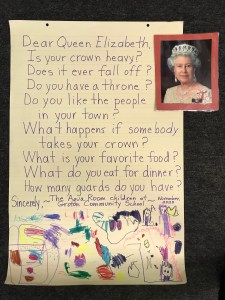 Dear Queen Elizabeth,
Is your crown heavy?
Does it ever fall off?
Do you have a throne?
Do you like the people
in your town?
What happens if somebody
takes your crown?
What is your favorite food?
What do you eat for dinner?
How many guards do you have?
Sincerely, ~ The Aqua Room children at ~ November
Community School